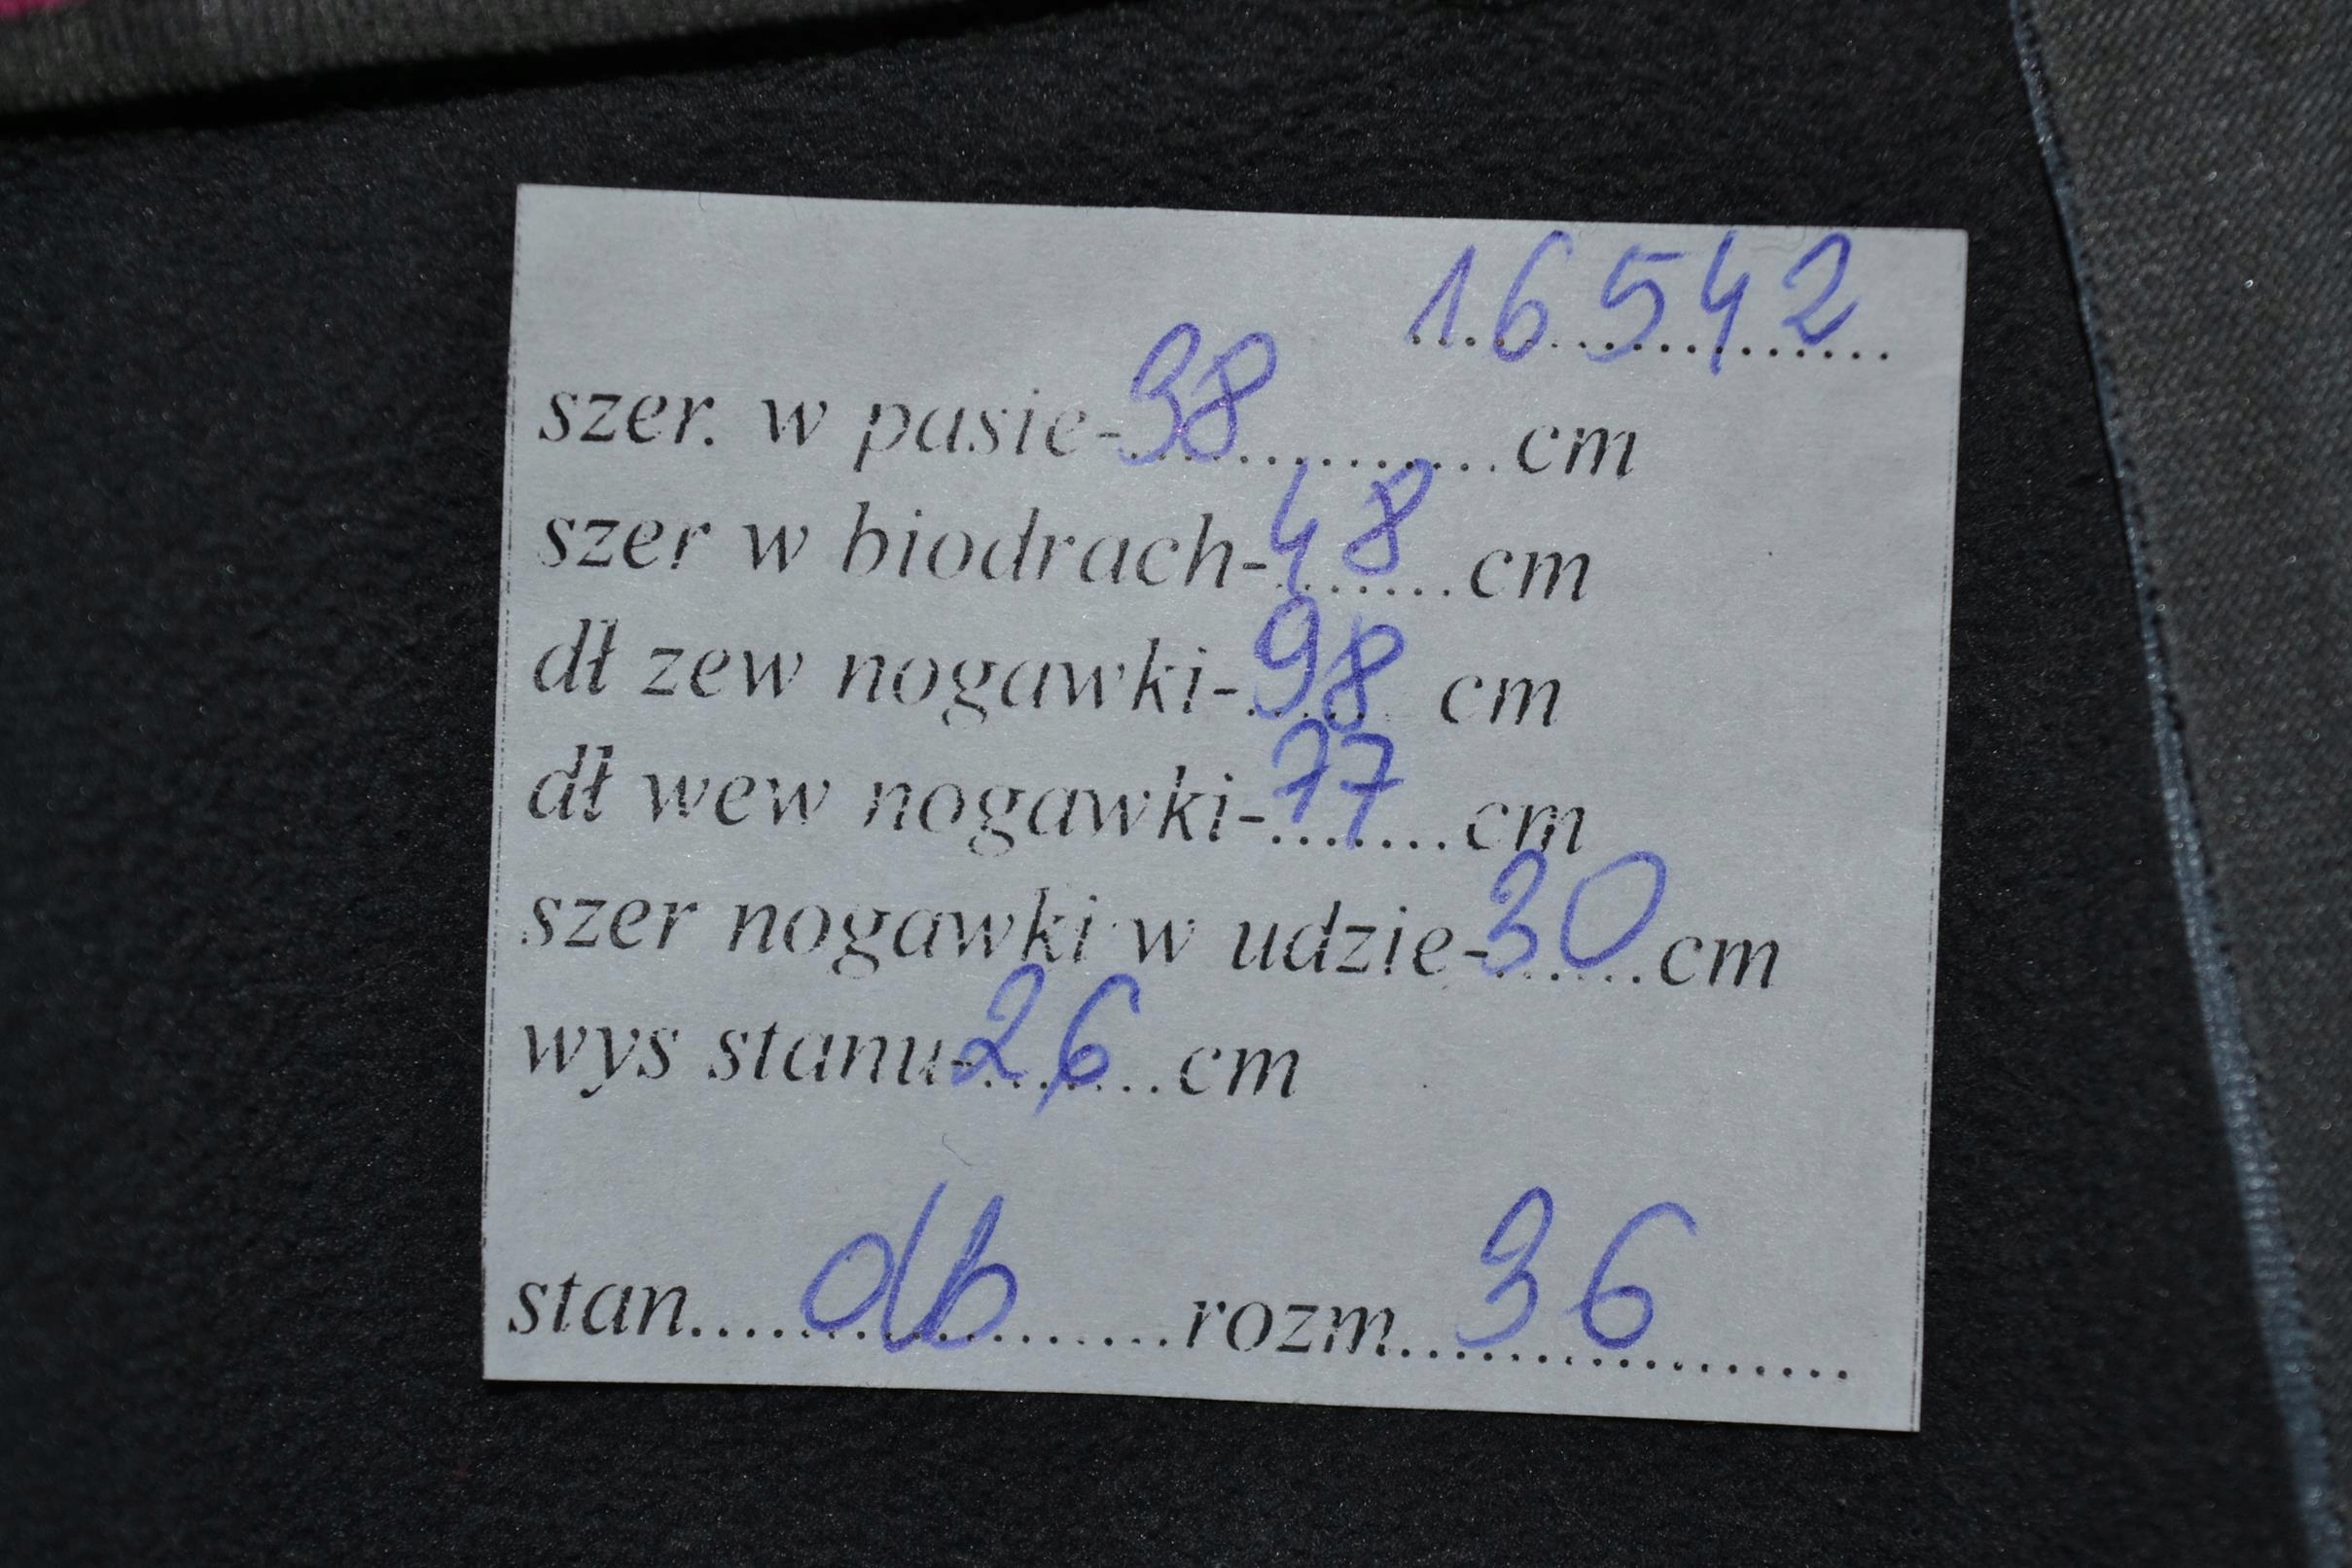 16542
szer. w pasie-38............cm
szer w biodrach-48.......cm
dł zew nogawki-98..... cm
dł wew nogawki-77.......cm
szer nogawki w udzie-30......cm
wys stanu-26.......cm
stan......db.........rozm...36.........